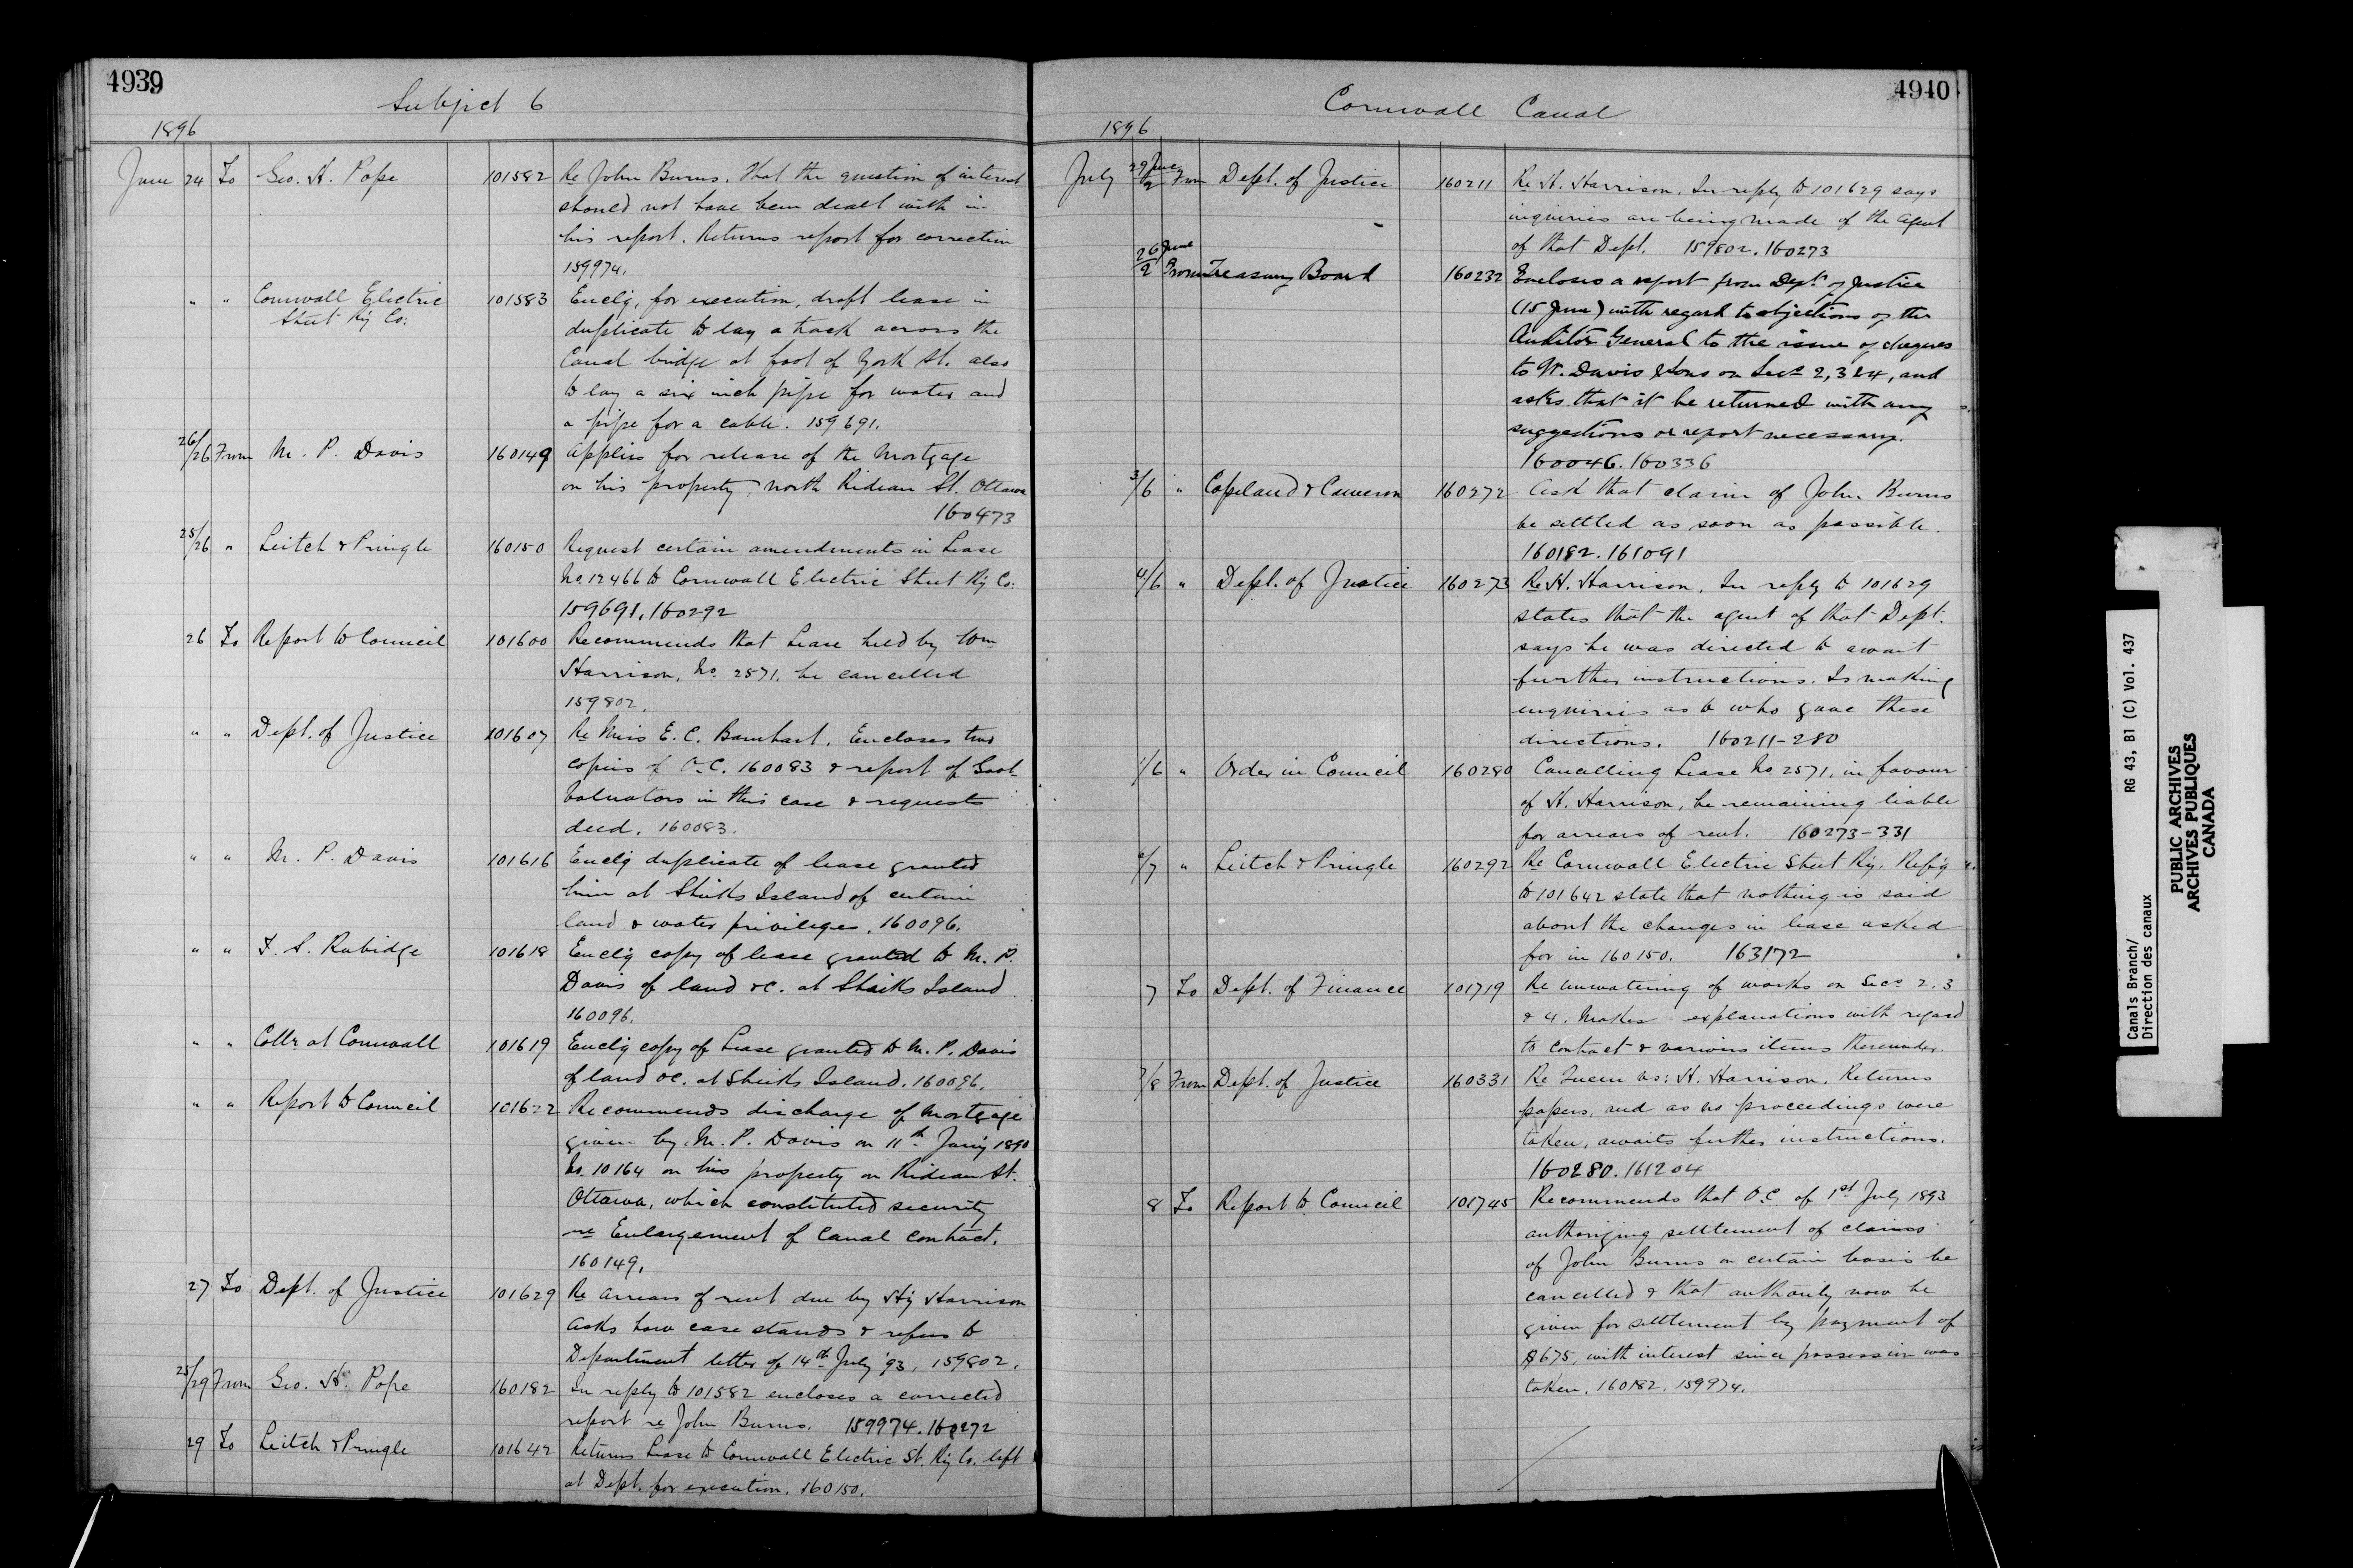 4939
Subject 6
1896
June 24 To Geo. H. Pope 101582 Re John Burns. That the question of interest
should not have been dealt with in
his report. Returns report for correction
159974.
" " Cornwall Electric 101583 Enclg, for execution, draft lease in
Street Ry Co: duplicate to lay a track across the
Canal bridge at foot of York St. also
to lay a six inch pipe for water and
a pipe for a cable. 159691.
26/26 From M. P. Davis 160149 Applies for release of the Mortgage
on his property, north Rideau St. Ottawa
160473
25/26 " Leitch & Pringle 160150 Request certain amendments in Lease
No. 12466 to Cornwall Electric Street Ry Co:
159691, 160292
26 To Report to Council 101600 Recommends that Lease held by Wm
Harrison, No. 2571, be cancelled
159802.
" " Dept. of Justice 101607 Re Miss E. C. Barnhart. Encloses two
copies of O.C. 160083 & report of Govt
Valuators in this case & requests
deed. 160083.
" " M. P. Davis 101616 Enclg duplicate of lease granted
him at Sheiks Island of certain
land & water privileges, 160096.
" " F. S. Rubidge 101618 Enclg copy of lease granted to M. P.
Davis of land &c. at Sheiks Island
160096.
" " Collr at Cornwall 101619 Enclg copy of Lease granted to M. P. Davis
of land &c. at Sheiks Island. 160096.
" " Report to Council 101622 Recommends discharge of mortgage
given by M. P. Davis on 11th Jany 1890
No. 10164 on his property on Rideau St.
Ottawa, which constituted security
re Enlargement of Canal contract.
160149.
27 To Dept. of Justice 101629 Re arrears of rent due by Hy Harrison
asks how case stands & refers to
Department letter of 14th July '93, 159802.
25/29 From Geo. H. Pope 160182 In reply to 101582 encloses a corrected
report re John Burns. 159974. 160272
29 To Leitch & Pringle 101642 Returns Lease to Cornwall Electric St. Ry Co. left
at Dept. for execution. 160150.
4940
Cornwall Canal
1896
July 29 June/2 From Dept. of Justice 160211 Re H. Harrison. In reply to 101629 says
inquiries are being made of the Agent
of that Dept. 159802. 160273
26 June/2 From Treasury Board 160232 Encloses a report from Dept of Justice
(15 June) with regard to objections of the
Auditor General to the issue of cheques
to W. Davis & Sons on Secs 2, 3 & 4, and
asks that it be returned with any
suggestions or report necessary.
160046. 160336
3/6 " Copeland & Cameron 160272 Ask that claim of John Burns
be settled as soon as possible.
160182. 161091
4/6 " Dept. of Justice 160273 Re H. Harrison, In reply to 101629
states that the agent of that Dept.
says he was directed to await
further instructions. Is making
enquiries as to who gave these
directions. 160211-280
1/6 " Order in Council 160280 Cancelling Lease No. 2571, in favour
of H. Harrison, he remaining liable
for arrears of rent. 160273-331
6/7 " Leitch & Pringle 160292 Re Cornwall Electric Street Ry. Refg
to 101642 state that nothing is said
about the changes in lease asked
for in 160150. 163172
7 To Dept. of Finance 101719 Re unwatering of works on Secs 2, 3
& 4. Makes explanations with regard
to contract & various items thereunder.
7/8 From Dept. of Justice 160331 Re Queen vs: H. Harrison. Returns
papers, and as no proceedings were
taken, awaits further instructions.
160280. 161204
8 To Report to Council 101745 Recommends that O.C. of 1st July 1893
authorizing settlement of claims
of John Burns on certain basis be
cancelled & that authority now be
given for settlement by payment of
$675, with interest since possession was
taken. 160182. 159974.
Canals Branch/ RG 43, B1 (C) Vol. 437
Direction des canaux
PUBLIC ARCHIVES
ARCHIVES PUBLIQUES
CANADA